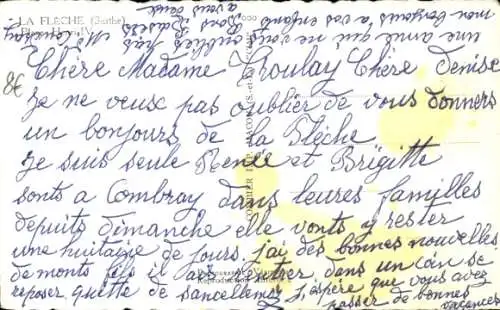 LA FLÈCHE (Sarthe)
Chère Madame Troulay Chère Denise
Je ne veux pas oublier de vous donners
un bonjours de la Flèche
Je suis seule Renée et Brigitte
sonts a Combray dans leures familles
depuits dimanche elle vonts y rester
une huitaine de jours j'ai des bonnes nouvelles
de monts fils il dans un
reposer quitte de j'espère que vous avez
passer de bonnes
vacances
une amie qui ne vous
oublies pas
mon bonjours a vos enfants
a vous deux
8€